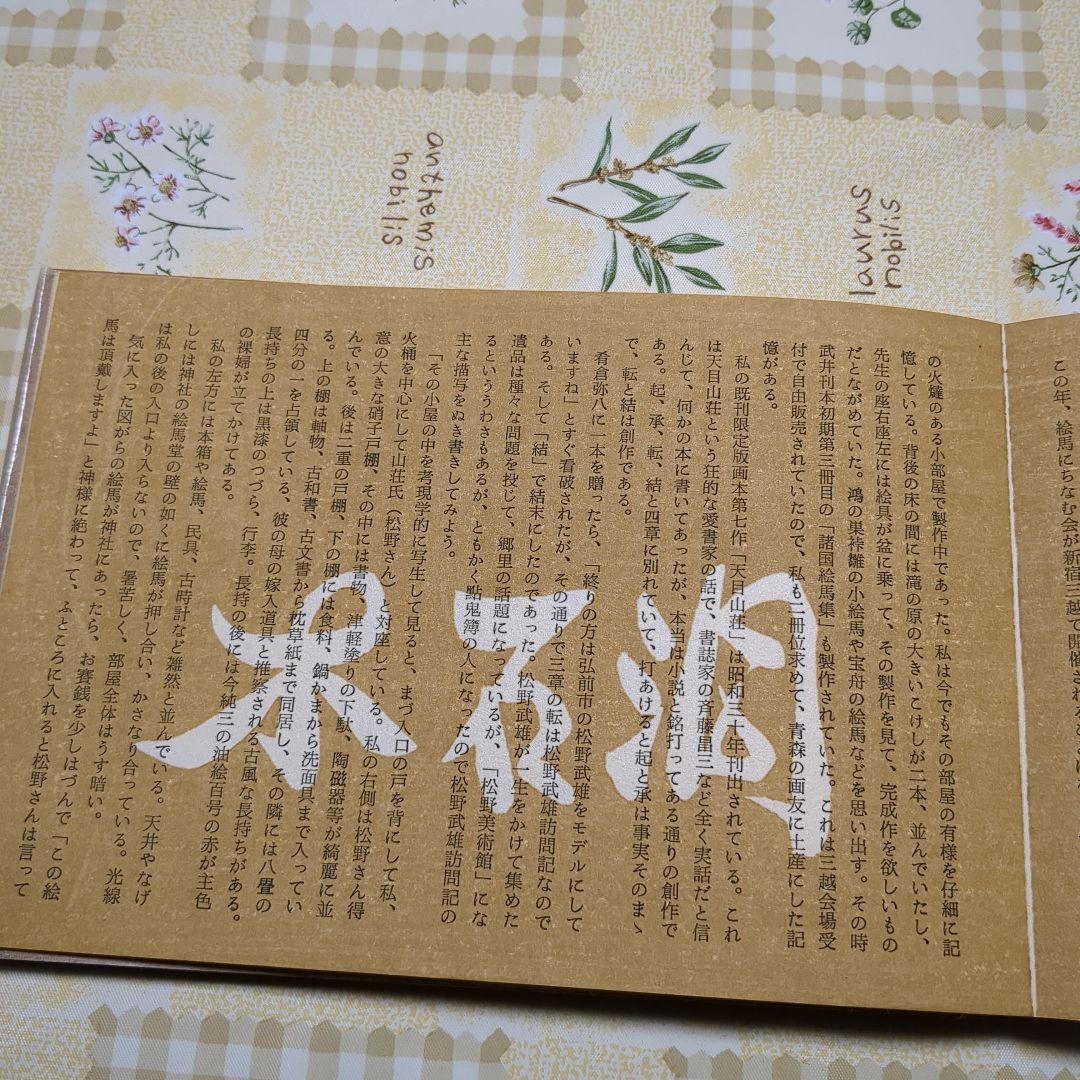 この年、絵馬にちなむ会が新宿三越で開催され
の火燵のある小部屋で製作中であった。私は今でもその部屋の有様を仔細に記
憶している。背後の床の間には滝の原の大きいこけしが二本、並んでいたし、
先生の座右座左には絵具が盆に乗って、その製作を見て、完成作を欲しいもの
だとながめていた。鴻の巣裃雛の小絵馬や宝舟の絵馬などを思い出す。その時
武井刊本初期第三冊目の「諸国絵馬集」も製作されていた。これは三越会場受
付で自由販売されていたので、私も二冊位求めて、青森の画友に土産にした記
憶がある。
私の既刊限定版画本第七作「天目山荘」は昭和三十年刊出されている。これ
は天目山荘という狂的な愛書家の話で、書誌家の斉藤昌三など全く実話だと信
んじて、何かの本に書いてあったが、本当は小説と銘打ってある通りの創作で
ある。起、承、転、結と四章に別れていて、打あけると起と承は事実そのまゝ
で、転と結は創作である。
肴倉弥八に一本を贈ったら、「終りの方は弘前市の松野武雄をモデルにして
いますね」とすぐ看破されたが、その通りで三章の転は松野武雄訪問記なので
ある。そして「結」で結末にしたのであった。松野武雄が一生をかけて集めた
遺品は種々な問題を投じて、郷里の話題になっているが、「松野美術館」にな
るといううわさもあるが、ともかく點鬼簿の人になったので松野武雄訪問記の
主な描写をぬき書きしてみよう。
「その小屋の中を考現学的に写生して見ると、まづ入口の戸を背にして私、
火桶を中心にして山荘氏（松野さん）と対座している。私の右側は松野さん得
意の大きな硝子戸棚、その中には書物、津軽塗りの下駄、陶磁器等が綺麗に並
んでいる。後は二重の戸棚、下の棚には食料、鍋かまから洗面具まで入ってい
る。上の棚は軸物、古和書、古文書から枕草紙まで同居し、その隣には八畳の
四分の一を占領している、彼の母の嫁入道具と推察される古風な長持ちがある。
長持ちの上は黒漆のつづら、行李。長持の後には今純三の油絵百号の赤が主色
の裸婦が立てかけてある。
私の左方には本箱や絵馬、民具、古時計など雑然と並んでいる。天井やなげ
しには神社の絵馬堂の壁の如くに絵馬が押し合い、かさなり合っている。光線
は私の後の入口より入らないので、暑苦しく、部屋全体はうす暗い。
気に入った図がらの絵馬が神社にあったら、お賽銭を少しはづんで「この絵
馬は頂戴しますよ」と神様に絶わって、ふところに入れると松野さんは言って
anthemis
nobilis
nobilis